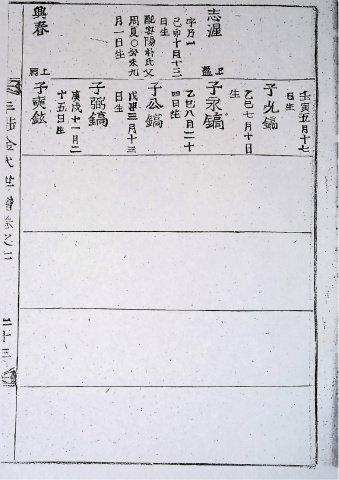 壬寅五月十七
日生
子光鎬
乙巳七月十日
生
志渥
子永鎬
字乃一
乙巳八月二十
己卯十月十三
四日生
日生
子公鎬
配密陽朴氏父
戊申三月十三
周夏〇癸未九
日生
月一日生
子弼鎬
庚戌十一月二
十五日生
興春
子奭鉉
三陟金氏世譜卷之七
二十三